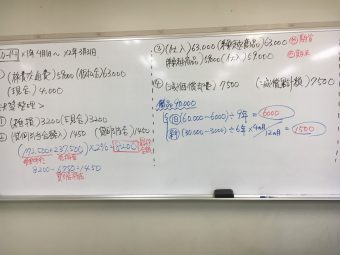 X1年4月1日 ～ X2年3月31日
(旅費交通費) 59000 (仮払金) 63000
(現金) 4000
決算整理
① (雑損) 3200 (現金) 3200
② (貸倒引当金繰入) 1450 (貸倒引当金) 1450
(172,500+237,500)×2%=8200
8200-6750=1450
③ (仕入) 63,000 (繰越商品) 63,000
(繰越商品) 59000 (仕入) 59000
④ (減価償却費) 7500 (減価償却累計額) 7500
備品 90000
旧 (60.000-6000)÷9年=6000
新 (30.000-3000)÷6年×4ヶ月/12ヶ月=1500